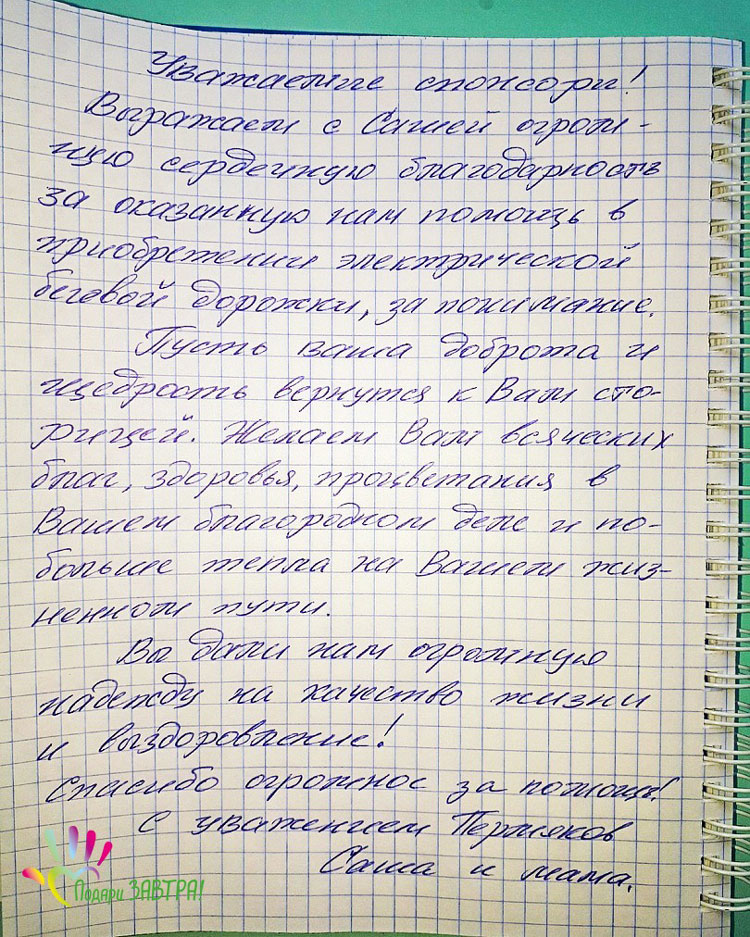 Уважаемые спонсоры!
Выражаем с Сашей огром-
ную сердечную благодарность
за оказанную нам помощь в
приобретении электрической
беговой дорожки, за понимание.
Пусть ваша доброта и
щедрость вернутся к Вам сто-
рицей. Желаем Вам всяческих
благ, здоровья, процветания в
Вашем благородном деле и по-
больше тепла на Вашем жиз-
ненном пути.
Вы дали нам огромную
надежду на качество жизни
и выздоровление!
Спасибо огромное за помощь!
С уважением Пермяков
Саша и мама.
Подари ЗАВТРА!